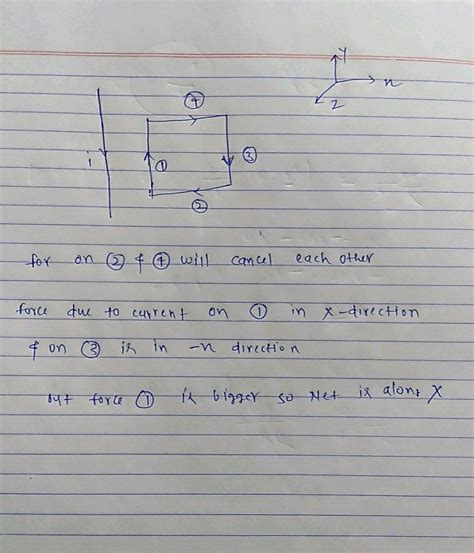 Y
x
Z
4
i
1
3
2
for on 2 & 4 will cancel each other
force due to current on 1 in x-direction
& on 3 is in -x direction
but force 1 is bigger so Net is along X